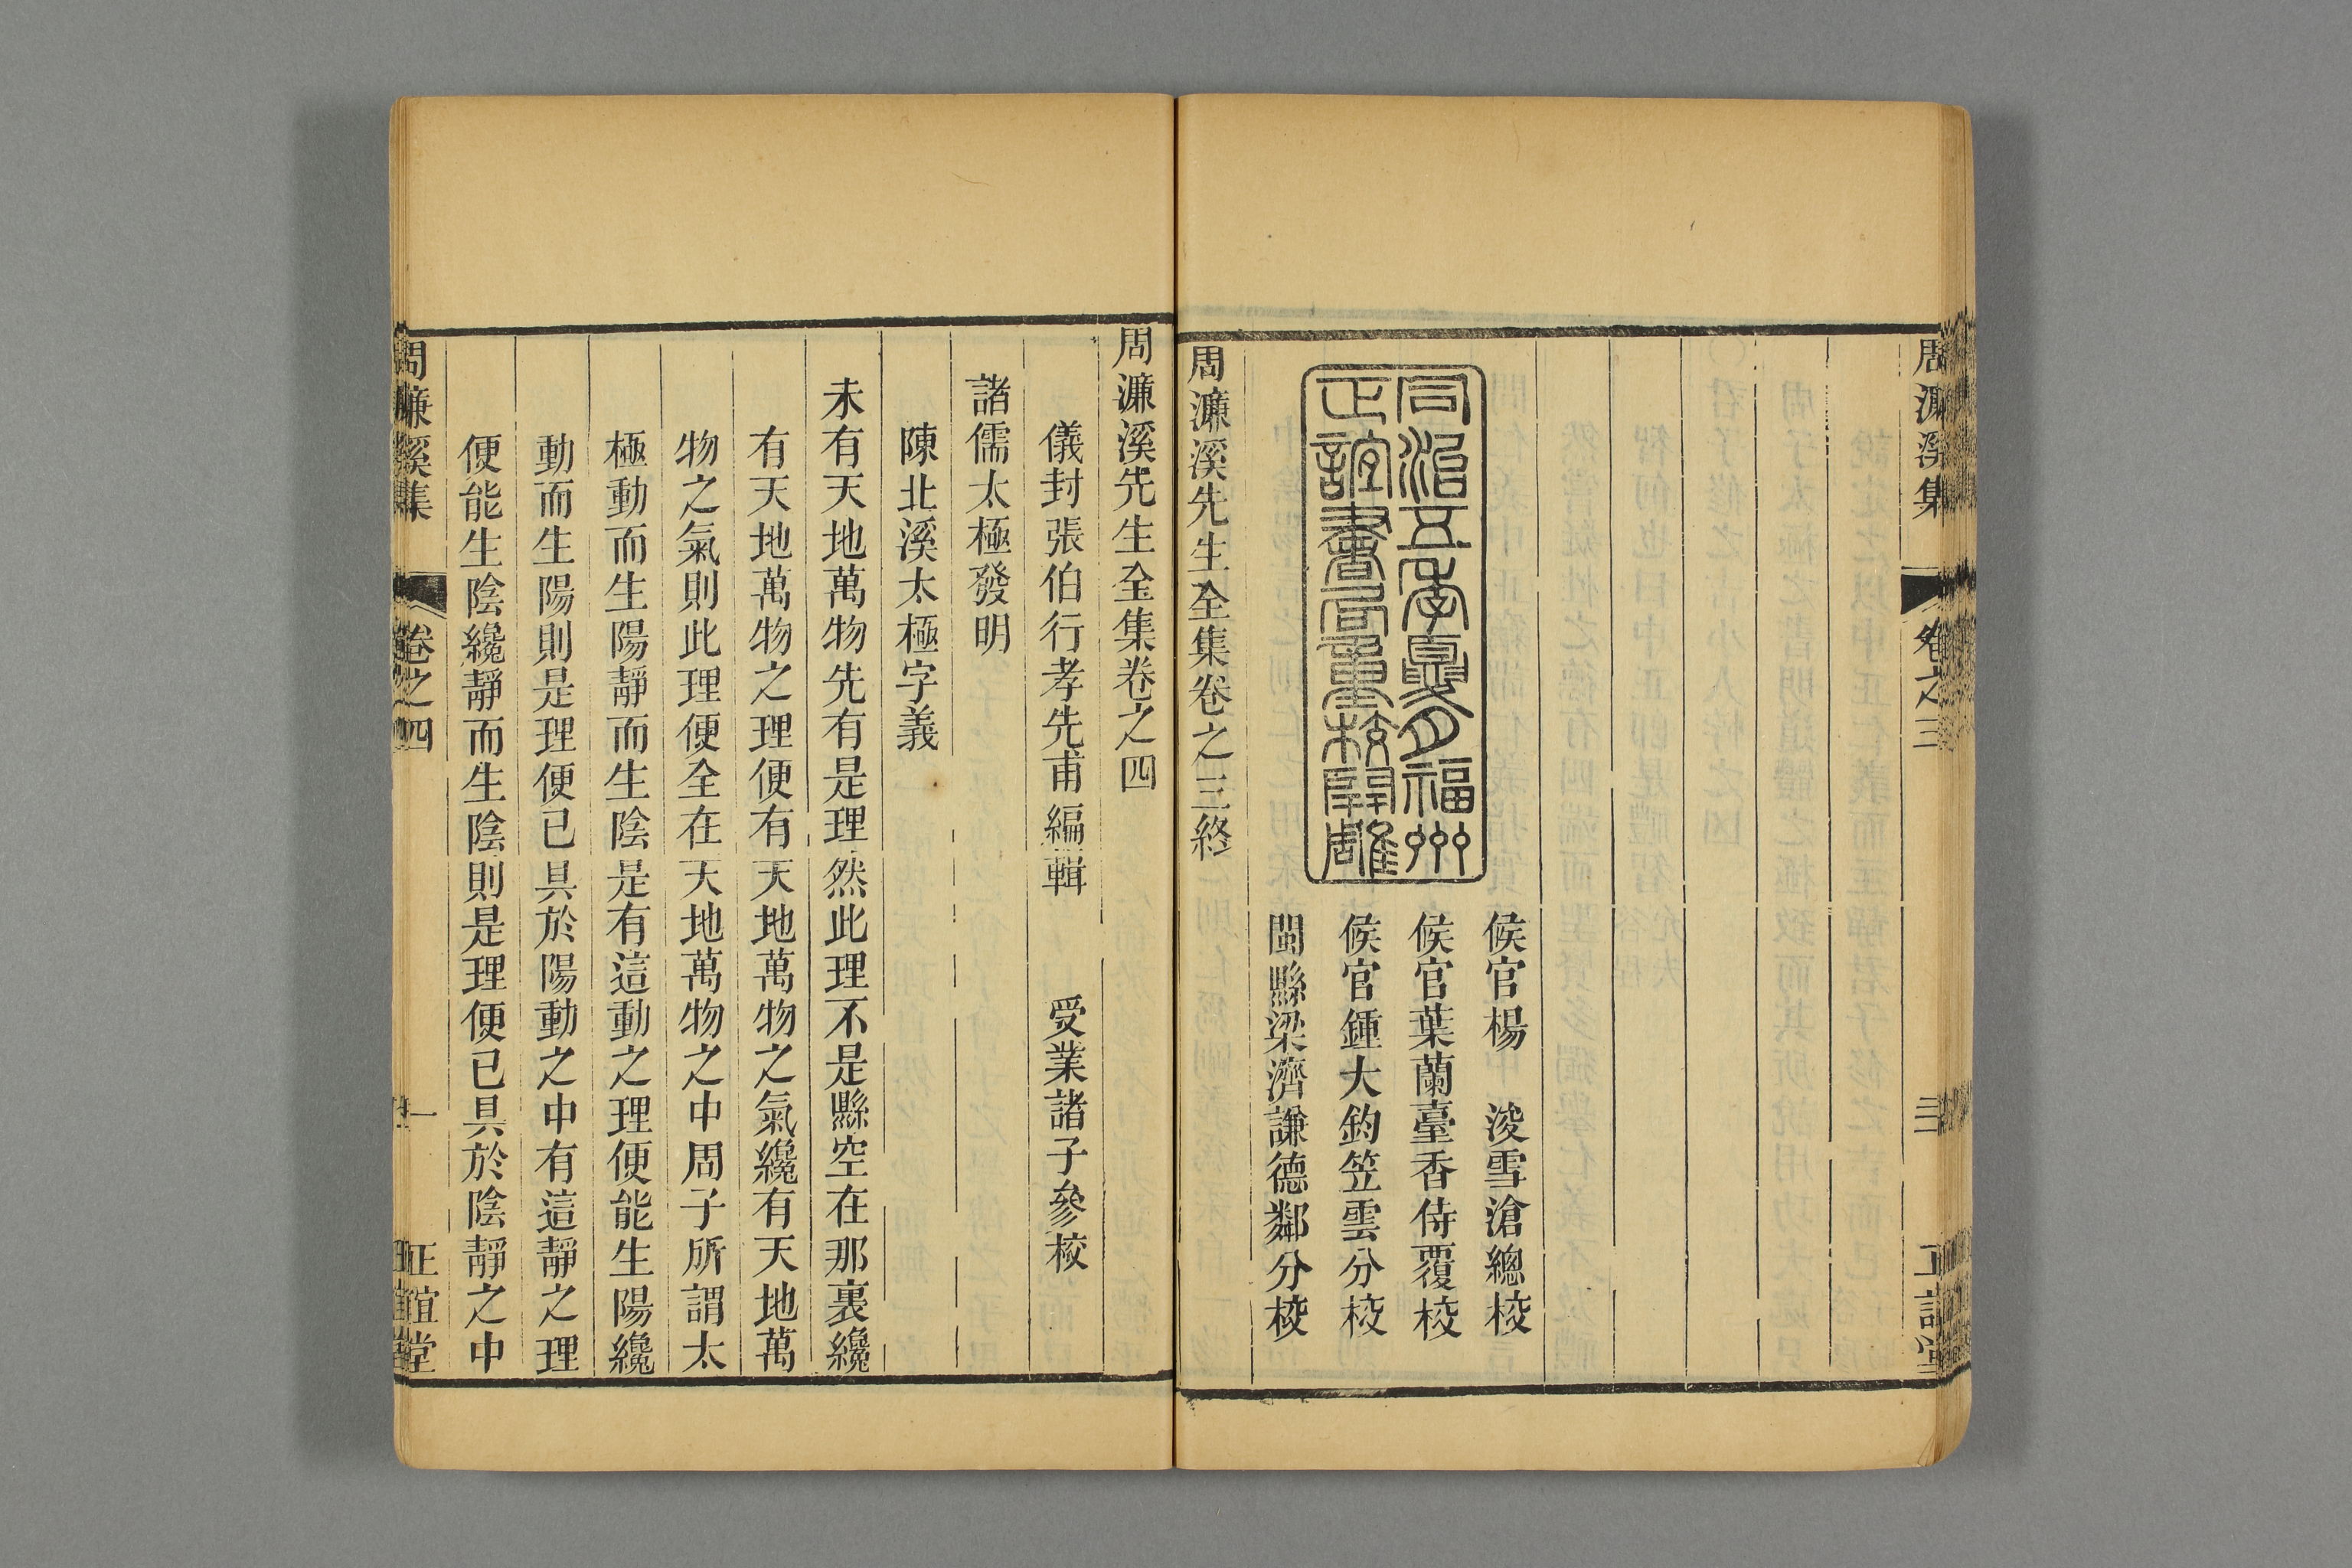 周濂溪集 卷之三 三 正誼堂
同治五年夏月福州
正誼書局重校開雕
侯官楊 浚雪滄總校
侯官葉蘭臺香侍覆校
侯官鍾大鈞笠雲分校
閩縣梁濟謙德鄰分校
周濂溪先生全集卷之三終
周濂溪先生全集卷之四
儀封張伯行孝先甫編輯 受業諸子參校
諸儒太極發明
陳北溪太極字義
未有天地萬物先有是理然此理不是縣空在那裏纔
有天地萬物之理便有天地萬物之氣纔有天地萬
物之氣則此理便全在天地萬物之中周子所謂太
極動而生陽靜而生陰是有這動之理便能生陽纔
動而生陽則是理便已具於陽動之中有這靜之理
便能生陰纔靜而生陰則是理便已具於陰靜之中
周濂溪集 卷之四 一 正誼堂